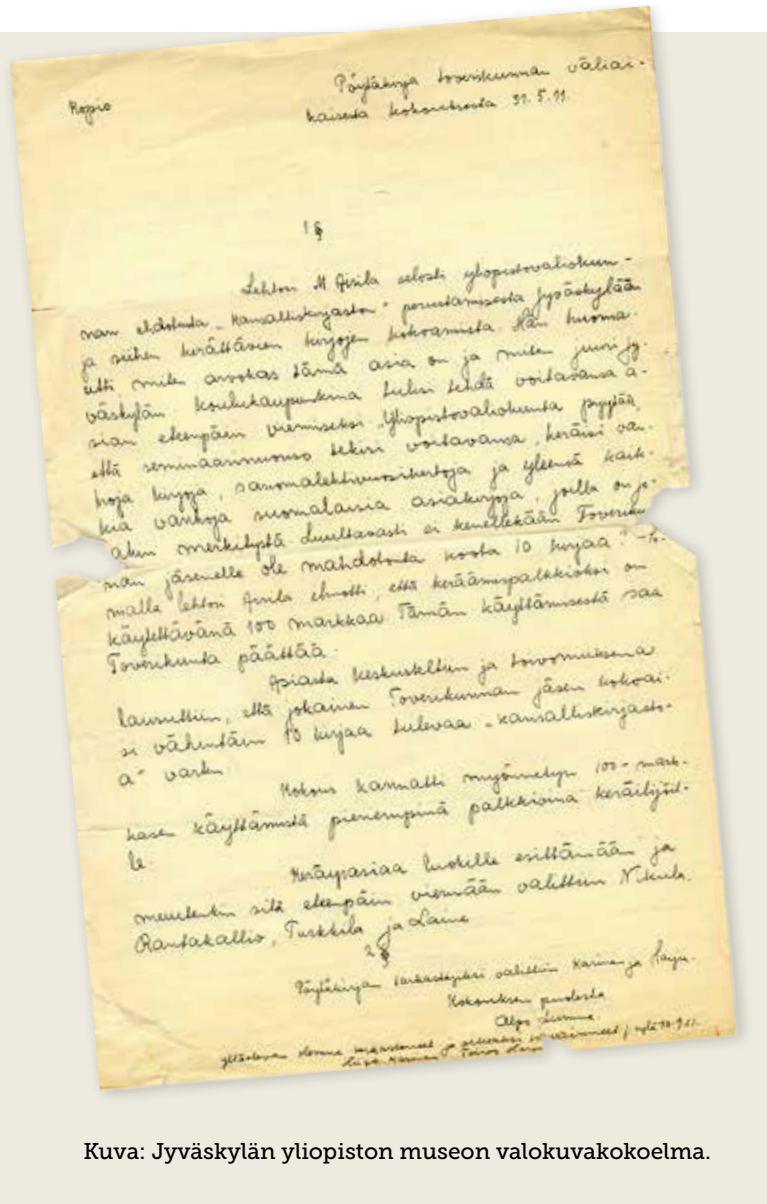 Kopio
Pöytäkirja toverikunnan väliai-
kaisesta kokouksesta 31.5.11.
1 §
Lehtori M Airila selosti yliopistovaliokun-
nan ehdotusta „Kansalliskirjaston" perustamisesta Jyväskylään
ja siihen kerättävien kirjojen kokoamista. Hän huoma-
utti miten arvokas tämä asia on ja miten juuri Jy-
väskylän koulukaupunkina tulisi tehdä voitavansa a-
sian eteenpäin viemiseksi. Yliopistovaliokunta pyytää,
että seminaarinuoriso tekisi voitavansa, keräisi van-
hoja kirjoja, sanomalehtivuosikertoja ja yleensä kaik-
kia vanhoja suomalaisia asiakirjoja, joilla on jo-
takin merkitystä. Luultavasti ei kenellekään Toveriku-
nan jäsenelle ole mahdotonta koota 10 kirjaa? – So-
malla lehtori Airila ilmotti, että keräämispalkkioksi on
käytettävänä 100 markkaa. Tämän käyttämisestä saa
Toverikunta päättää.
Asiasta keskusteltiin ja toivomuksena
lausuttiin, että jokainen Toverikunnan jäsen kokoai-
si vähintäin 10 kirjaa tulevaa „kansalliskirjasto-
a" varten.
Kokous kannatti myönnetyn 100-mark-
kasen käyttämistä pienempinä palkkioina keräilijöil-
le.
Keräysasiaa luokille esittämään ja
muutenkin sitä eteenpäin viemään valittiin Nikula,
Rantakallio, Turkkila ja Laine
2 §
Pöytäkirjan tarkastajiksi valittiin Karinen ja Harju.
Kokouksen puolesta
Kuva: Jyväskylän yliopiston museon valokuvakokoelma.